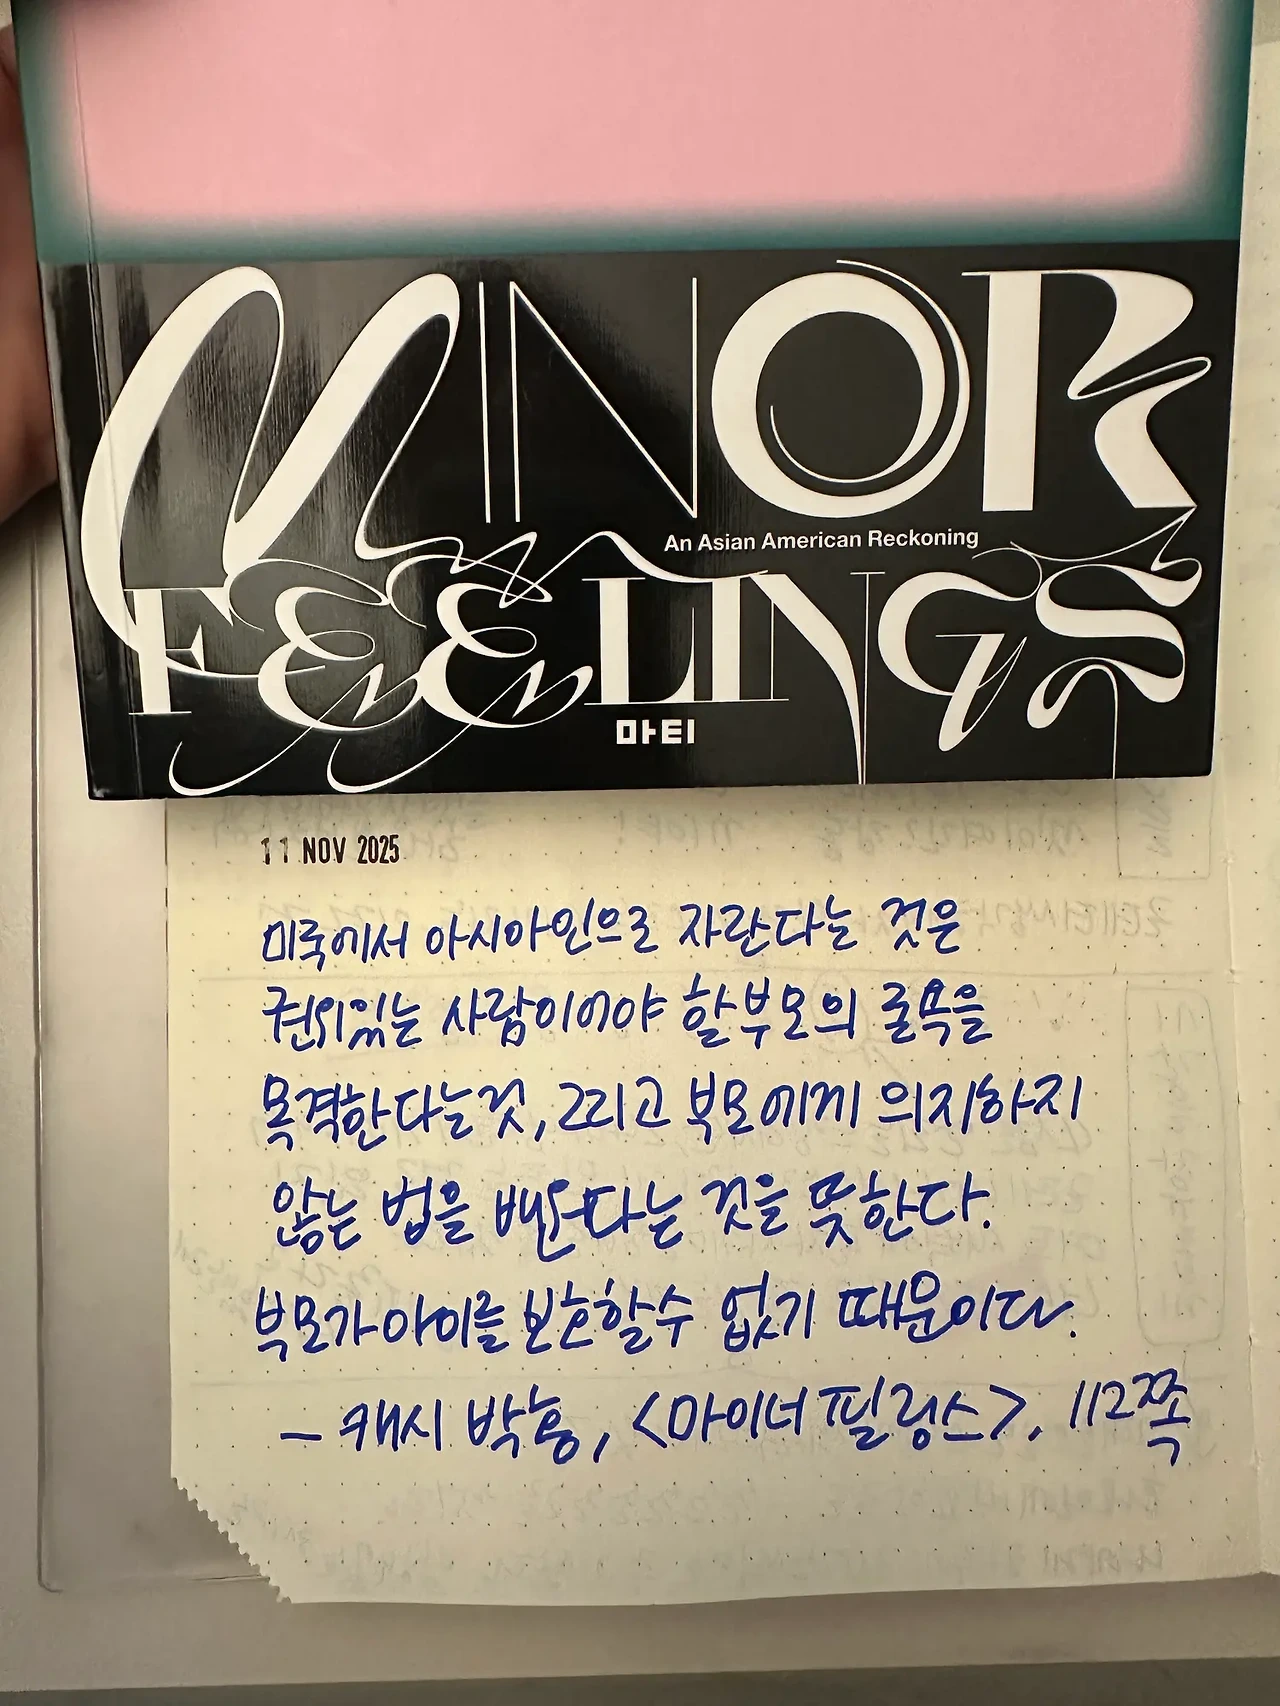 MINOR
An Asian American Reckoning
FEELINGS
마티
11 NOV 2025
미국에서 아시아인으로 자란다는 것은
권위있는 사람이어야 할 부모의 굴욕을
목격한다는것, 그리고 부모에게 의지하지
않는 법을 배운다는 것을 뜻한다.
부모가 아이를 보호할 수 없기 때문이다.
- 캐시 박 홍, <마이너 필링스>, 112쪽